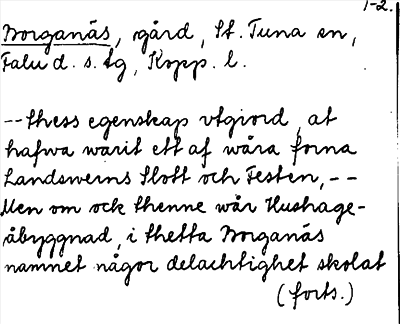 1-2.
Borganäs, gård, St. Tuna sn,
Falu d. s. tg, Kopp. l.
-- thess egenskap vtgiord, at
hafwa warit ett af wåra forna
Landswerns Slott och Festen, --
Men om ock thenne wår Hushage-
åbyggnad, i thetta Borganäs
namnet någor delachtighet skolat
(forts.)